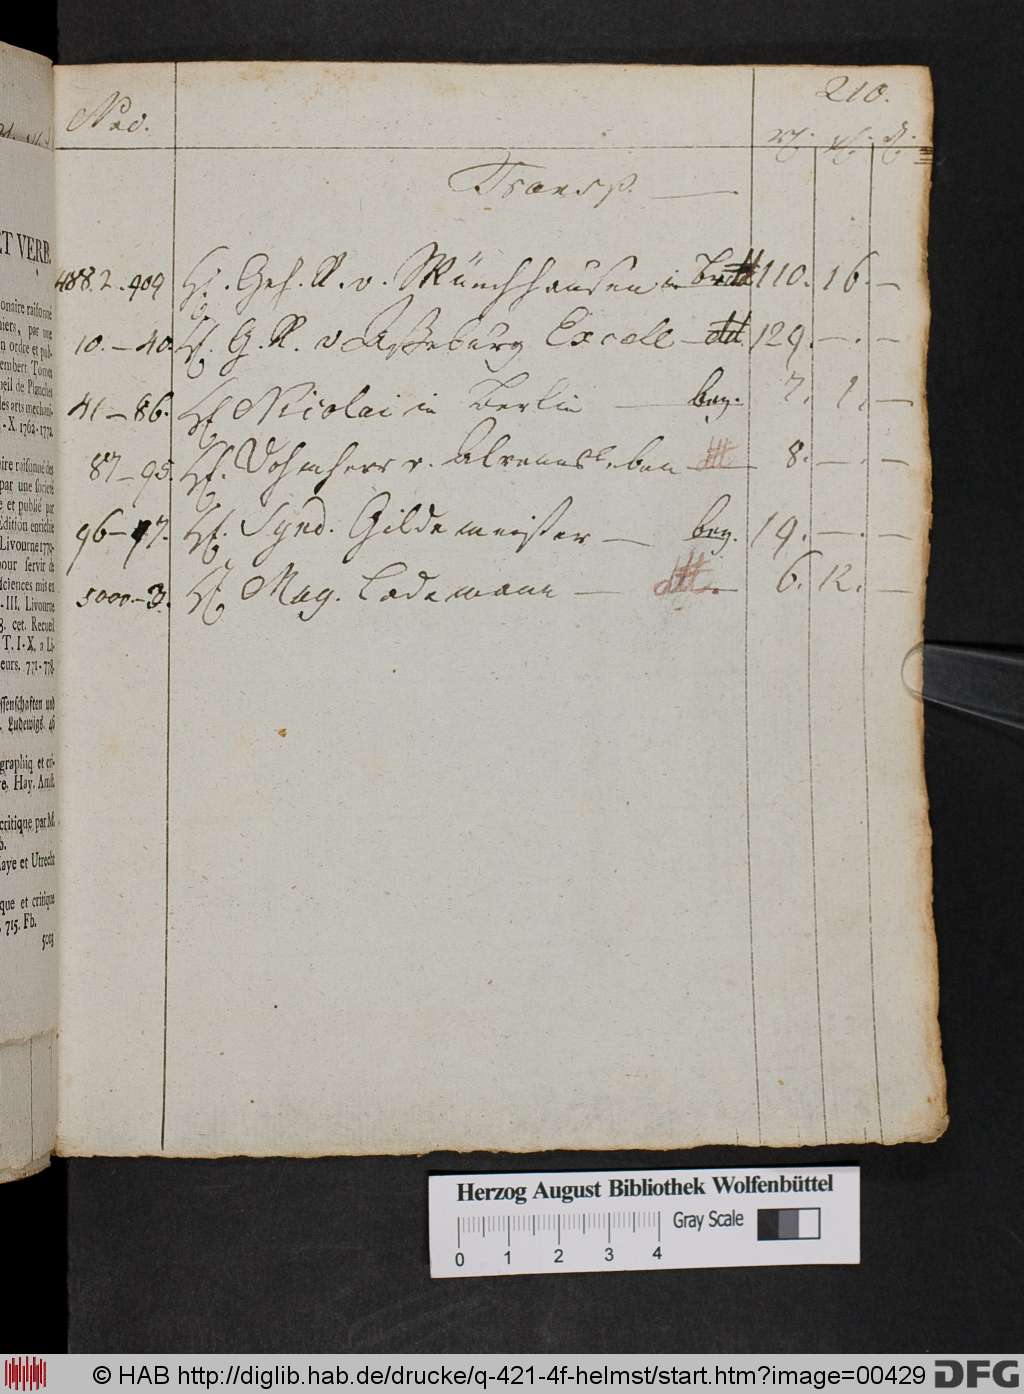 210.
Nro.
Transp. —
4882–909 H. Geh. R. v. Münchhausen in 110. 16. –
10.–40. H. G. R. v Asseburg Excell – dd. 129. –. –
41–86. H. Nicolai in Berlin — bez. 7. 1. –
87–95. H. Domherr v. Alvensleben 8. –. –
96–97. H. Synd. Gildemeister — bez. 19. –. –
5000.–3. H. Mag. Lademann — 6. 12. –
ET VERB.
onaire raisonné
iers, par une
n ordre et pub-
embert. Tomes
ueil de Planches
des arts mechani-
- X. 1762-1772
ire raisonné des
par une société
e et publié par
Edition enrichie
Livourne 1770-
pour servir de
Sciences mis en
- III, Livourne
3. cet. Recueil
T. I-X. a Li-
eurs. 771-778.
ssenschaften und
. Ludewigs. 46
graphiq et cri-
e. Hay. Amst.
critique par M.
b.
aye et Utrecht
que et critique
. 715. Fb.
5003
Herzog August Bibliothek Wolfenbüttel
Gray Scale
0 1 2 3 4
© HAB http://diglib.hab.de/drucke/q-421-4f-helmst/start.htm?image=00429 DFG